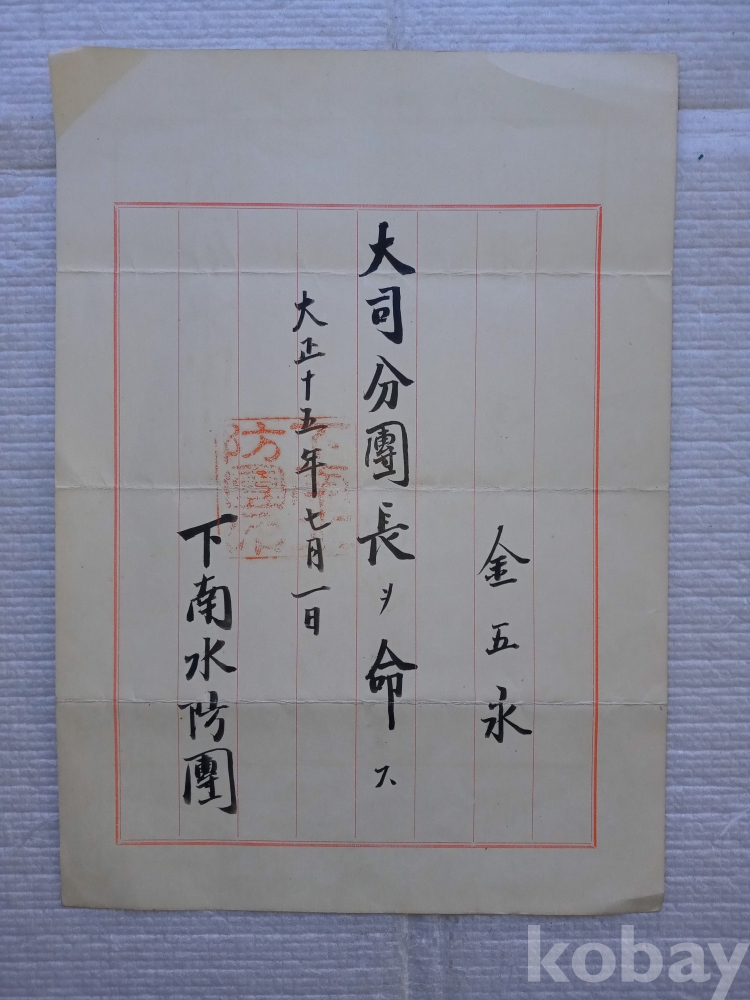 金五永
大司分團長ヲ命ス
大正十五年七月一日
下南水防團
kobay